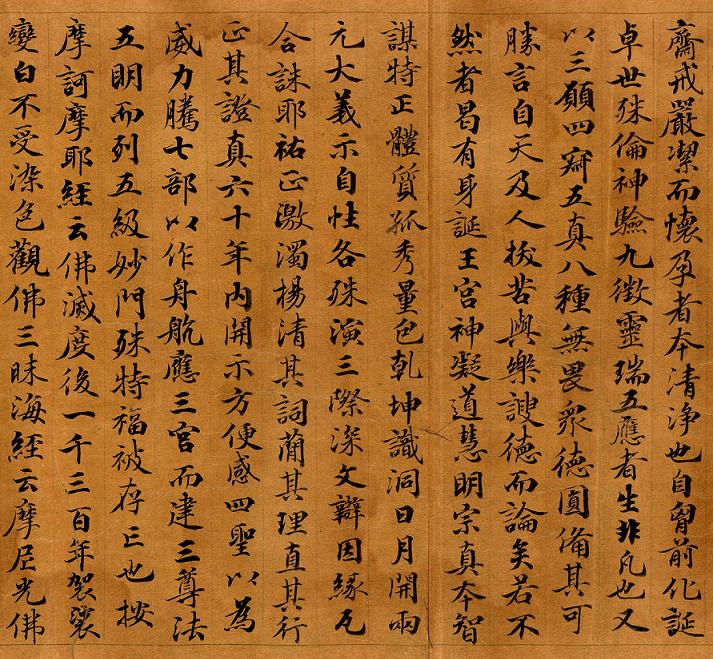 齋戒嚴潔而懷孕者本清淨也自胷前化誕
卓世殊倫神驗九徵靈瑞五應者生非凡也又
以三願四寂五真八種無畏衆德圓備其可
勝言自天及人拔苦與樂謏德而論矣若不
然者曷有身誕王宮神凝道慧明宗真本智
謀特正體質孤秀量包乾坤識洞日月開兩
元大義示自性各殊演三際深文辯因緣瓦
合誅耶祐正激濁楊清其詞蕳其理直其行
正其證真六十年內開示方便感四聖以為
威力騰七部以作舟航應三宮而建三尊法
五明而列五級妙門殊特福被存亡也按
摩訶摩耶經云佛滅度後一千三百年袈裟
變白不受染色觀佛三昧海經云摩尼光佛